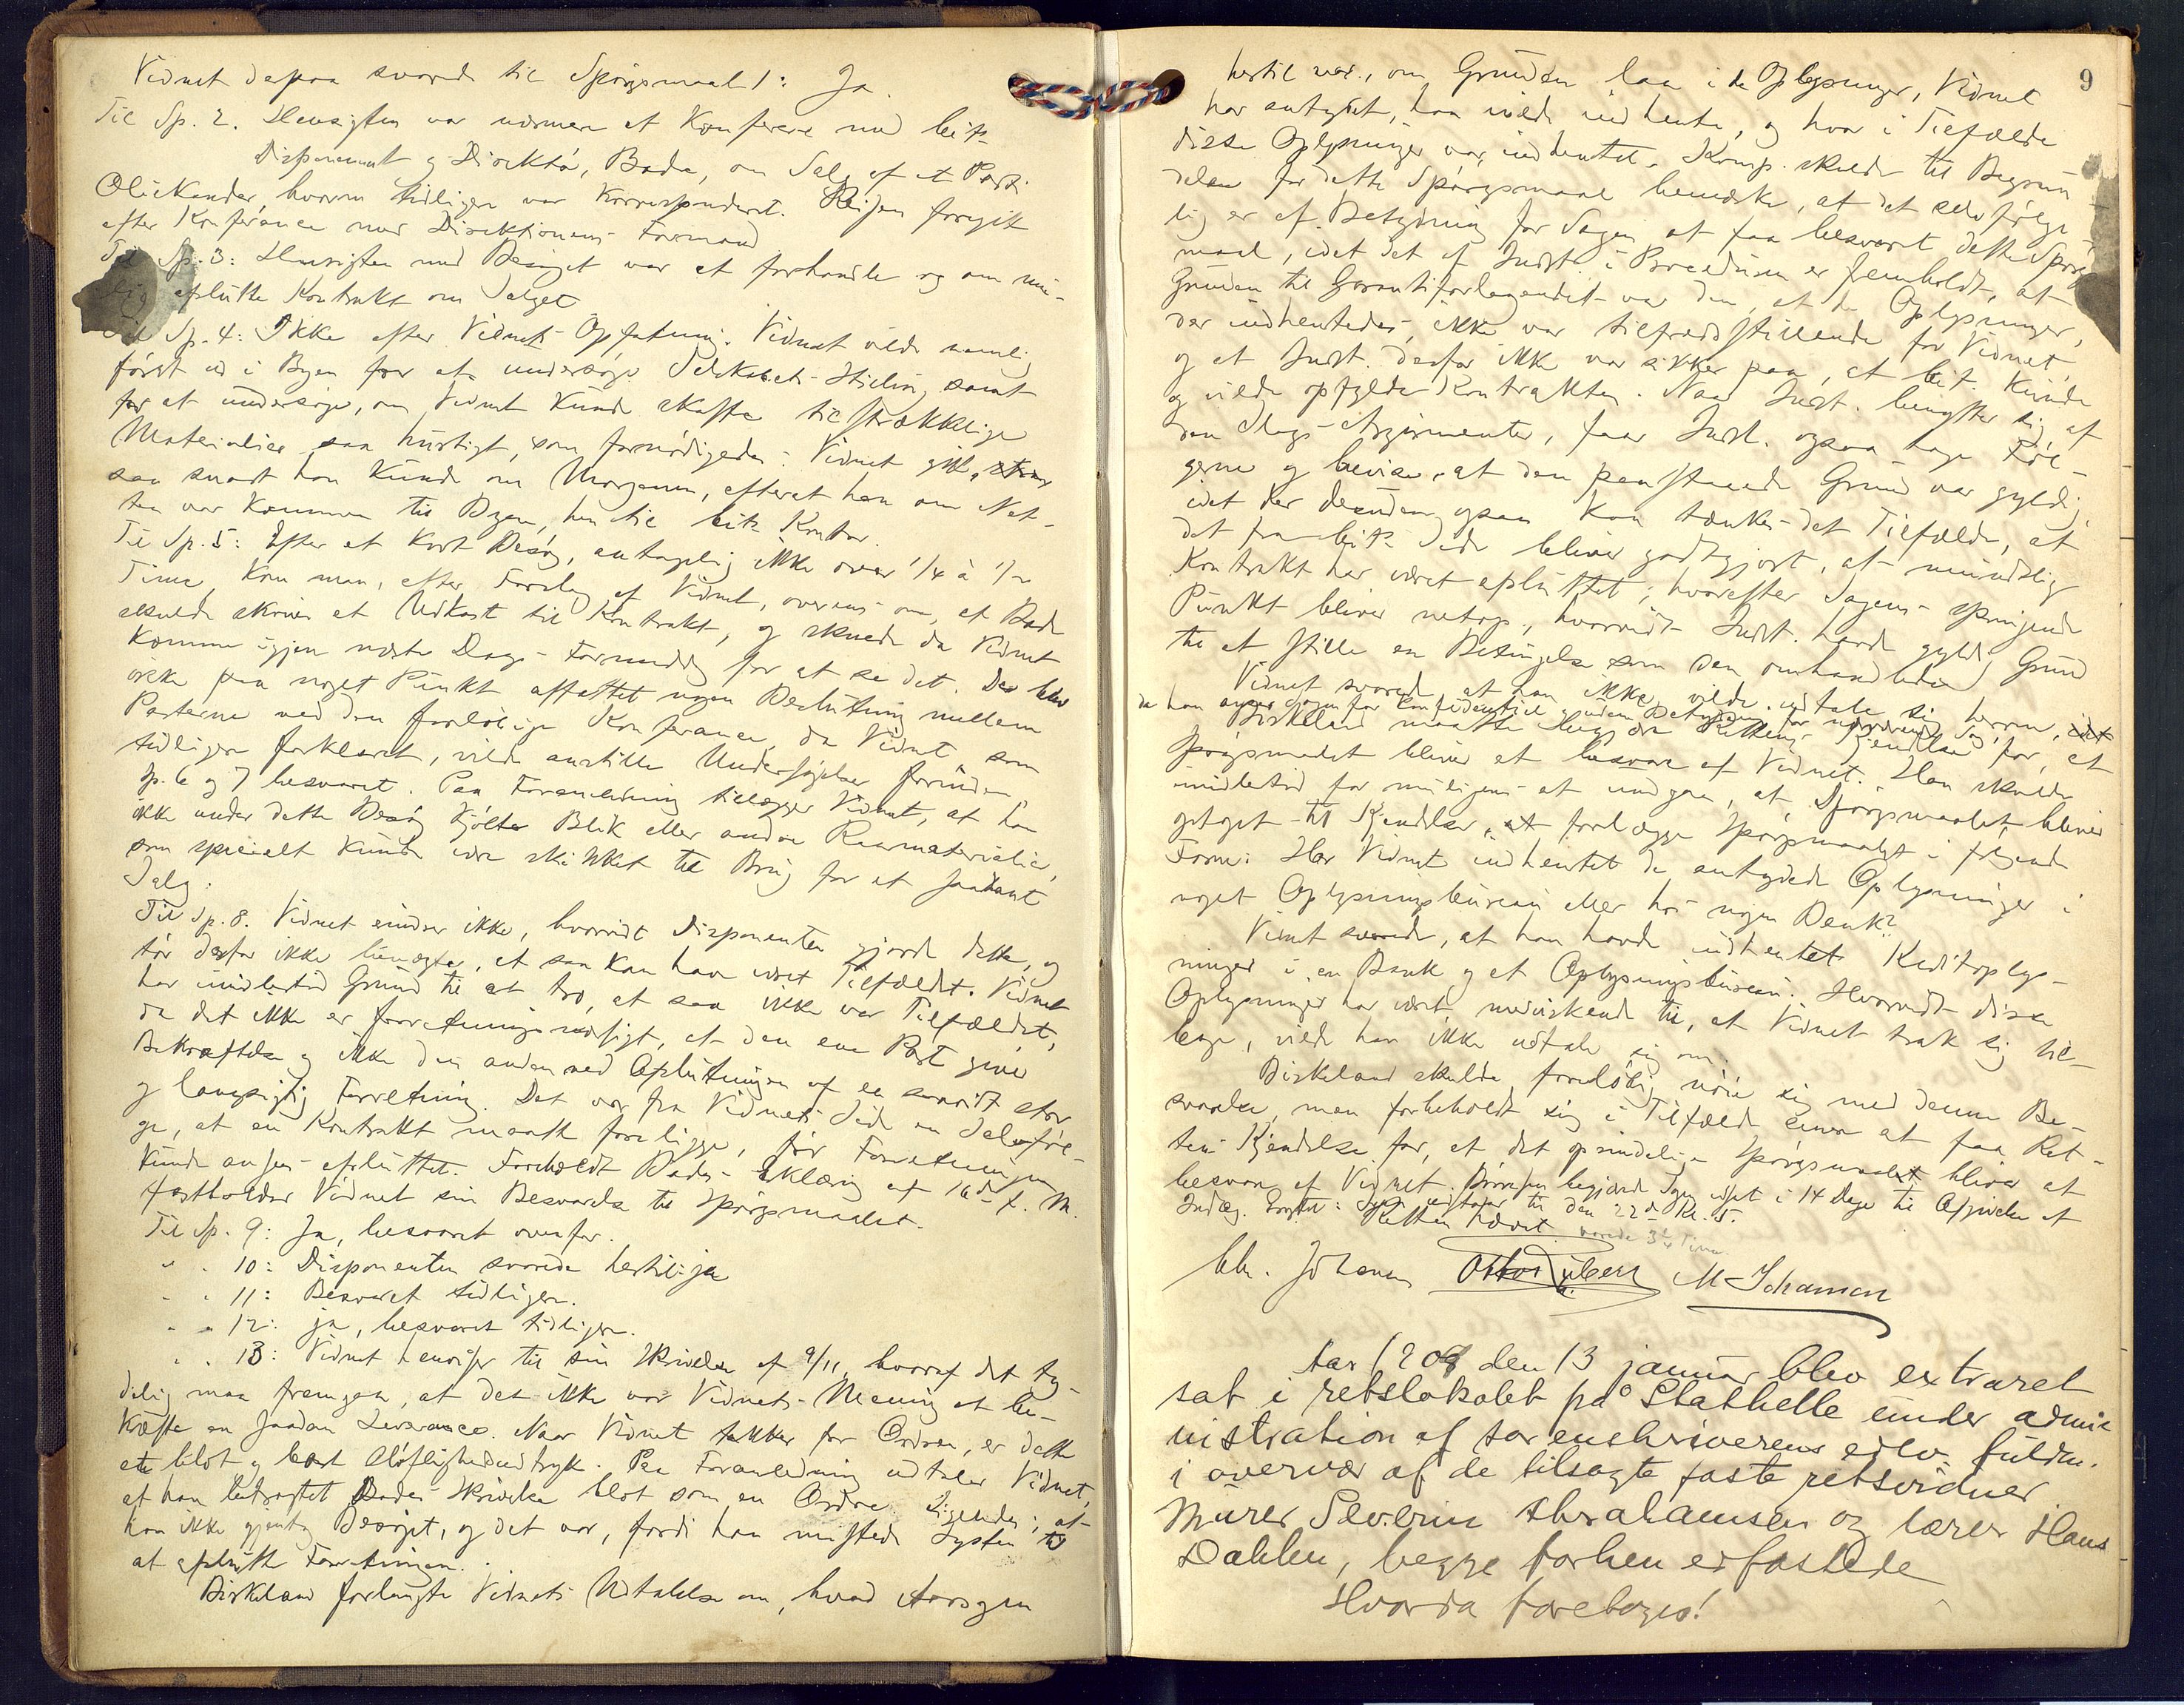 Vidnet depaa svarede til Spörgsmaal 1: Ja.
Til Sp. 2. Hensigten var nærmere at Konferere med beit.
Disponent og Direktör, Bade, om Salg af et Parti
Oliekander, hvorom tidligere var Korresponderet. Reisen foregik
efter Konferance med Direktionens Formand
Til Sp. 3: Hensigten med Besöget var at forhandle og om mu-
lig afslutte Kontrakt om Salget
Til Sp. 4: Ikke efter Vidnets Opfatning. Vidnet vilde nemlig
först ud i Byen for at undersöge Selskabets Stilling, samt
for at undersöge, om Vidnet Kunde skaffe tilstrækkelige
Materialier saa hurtigt, som fornödigedes. Vidnet gik, straks
saa snart han Kunde om Morgenen, efterat han om Nat-
ten var Kommen til Byen, hen til beits Kontor.
Til Sp. 5: Efter et Kort Besög, antagelig ikke over 1/4 à 1/2
Time, Kom man, efter Forslag af Vidnet, overens om, at Bade
skulde skrive et Udkast til Kontrakt, og skulde da Vidnet
Komme igjen næste Dags Formiddag for at se det. Der blev
ikke paa noget Punkt affattet nogen Beslutning mellem
Parterne ved den foreløbige Konferance, da Vidnet, som
tidligere forklaret, vilde anstille Undersøgelser forinden.
Sp. 6 og 7 besvaret. Paa Foranledning tillægger Vidnet, at han
ikke under dette Besög Kjöbte Blik eller andre Raamaterialier,
som specielt Kunde være skikket til Brug for et saadant
Salg.
Til Sp. 8. Vidnet erindrer ikke, hvorvidt Disponenten gjorde dette, og
tör derfor ikke benægte, at saa Kan have været Tilfældet. Vidnet
har imidlertid Grund til at tro, at saa ikke var Tilfældet,
da det ikke er forretningsmæsigt, at den ene Part giver
Bekræftelse og ikke den anden ved Afslutningen af en saavidt stor
og langsigtig Forretning. Det var fra Vidnets Side en Selvföl-
ge, at en Kontrakt maatte foreligge, för Forretningen
Kunde ansees afsluttet. Foreholdt Bades Erklæring af 16de f. M.
fastholder Vidnet sin Besvarelse til Spörgsmaalet.
Til Sp. 9: Ja, besvaret ovenfor.
" " 10: Disponenten svarede hertil ja
" " 11: Besvaret tidligere.
" " 12: ja, besvaret tidligere.
" " 13: Vidnet henviser til sin Skrivelse af 9/11, hvoraf det ty-
delig maa fremgaa, at det ikke var Vidnets Mening at be-
kræfte en saadan Leverance. Naar Vidnet takker for Ordren, er dette
et blot og bart Höflighedsudtryk. Paa Foranledning udtaler Vidnet,
at han betragtet Bades Skrivelse blot som en Ordre. Ligeledes, at
han ikke gjentog Besöget, og det var, fordi han mistede Lysten til
at afslutte Forretningen.
Birkeland forlangte Vidnets Udtalelse om, hvad Aarsagen
9
hertil var, om Grunden laa i de Oplysninger, Vidnet
har antydet, han vilde indhente, og hvor i Tilfælde
disse Oplysninger var indhentet. Komp. skulde til Begrun-
delse for dette Spörgsmaal bemærke, at det selvfølge-
lig er af Betydning for Sagen at faa besvaret dette Spörgs-
maal, idet det af Indst. i Proceduren er fremholdt, at
Grunden til Garantiforlagendet var den, at de Oplysninger,
der indhentedes, ikke var tilfredsstillende for Vidnet,
og at Indst. derfor ikke var sikker paa, at beit. Kunde
og vilde opfylde Kontrakten. Naar Indst. benytter sig af
den Slags Argumenter, faar Indst. ogsaa tage Föl-
gerne og bevise, at den paastaaede Grund var gyldig,
idet der desuden ogsaa Kan tænkes det Tilfælde, at
det fra beits Side bliver godtgjort, at mundtlig
Kontrakt har været afsluttet, hvorefter Sagens springende
Punkt bliver netop, hvorvidt Indst. havde gyldig Grund
til at stille en Betingelse som den omhandlede.
Vidnet svarede, at han ikke vilde udtale sig herom, idet
da han anser som for Konfidentiel uden Betydning for nærværende Sag.
Birkeland maatte begjære Rettens Kjendelse for, at
Spörgsmaalet bliver at besvare af Vidnet. Han skulde
imidlertid for muligens at undgaa, at Spörgsmaalet bliver
optaget til Kjendelse, at forelægge Spörgsmaalet i følgende
Form: Har Vidnet indhentet de antydede Oplysninger i
noget Oplysningsbureau eller hos nogen Bank?
Vidnet svarede, at han havde indhentet Kreditoplys-
ninger i en Bank og et Oplysningsbureau. Hvorvidt disse
Oplysninger har været medvirkende til, at Vidnet trak sig til-
bage, vilde han ikke udtale sig om.
Birkeland skulde foreløbig nöie sig med denne Be-
svarelse, men forbeholdt sig i Tilfælde senere at faa Ret-
tens Kjendelse for, at det oprindelige Spörgsmaalet bliver at
besvare af Vidnet. begjærede Sagen udsat i 14 Dage til Afgivelse af
Indlæg. Sagen udstaar til den 22de Kl. 5.
Retten hævet. varede 3 Time.
Chr. Johansen M Johansen
Aar 1908 den 13 januar blev extraret
sat i retslokalet på Stathelle under admi
nistration af sorenskriverens edsv. fuldm.
i overvær af de tilsagte faste retsvidner
Murer Severin Abrahamsen og lærer Hans
Dahlen, begge forhen edfæstede
Hvorda foretoges!